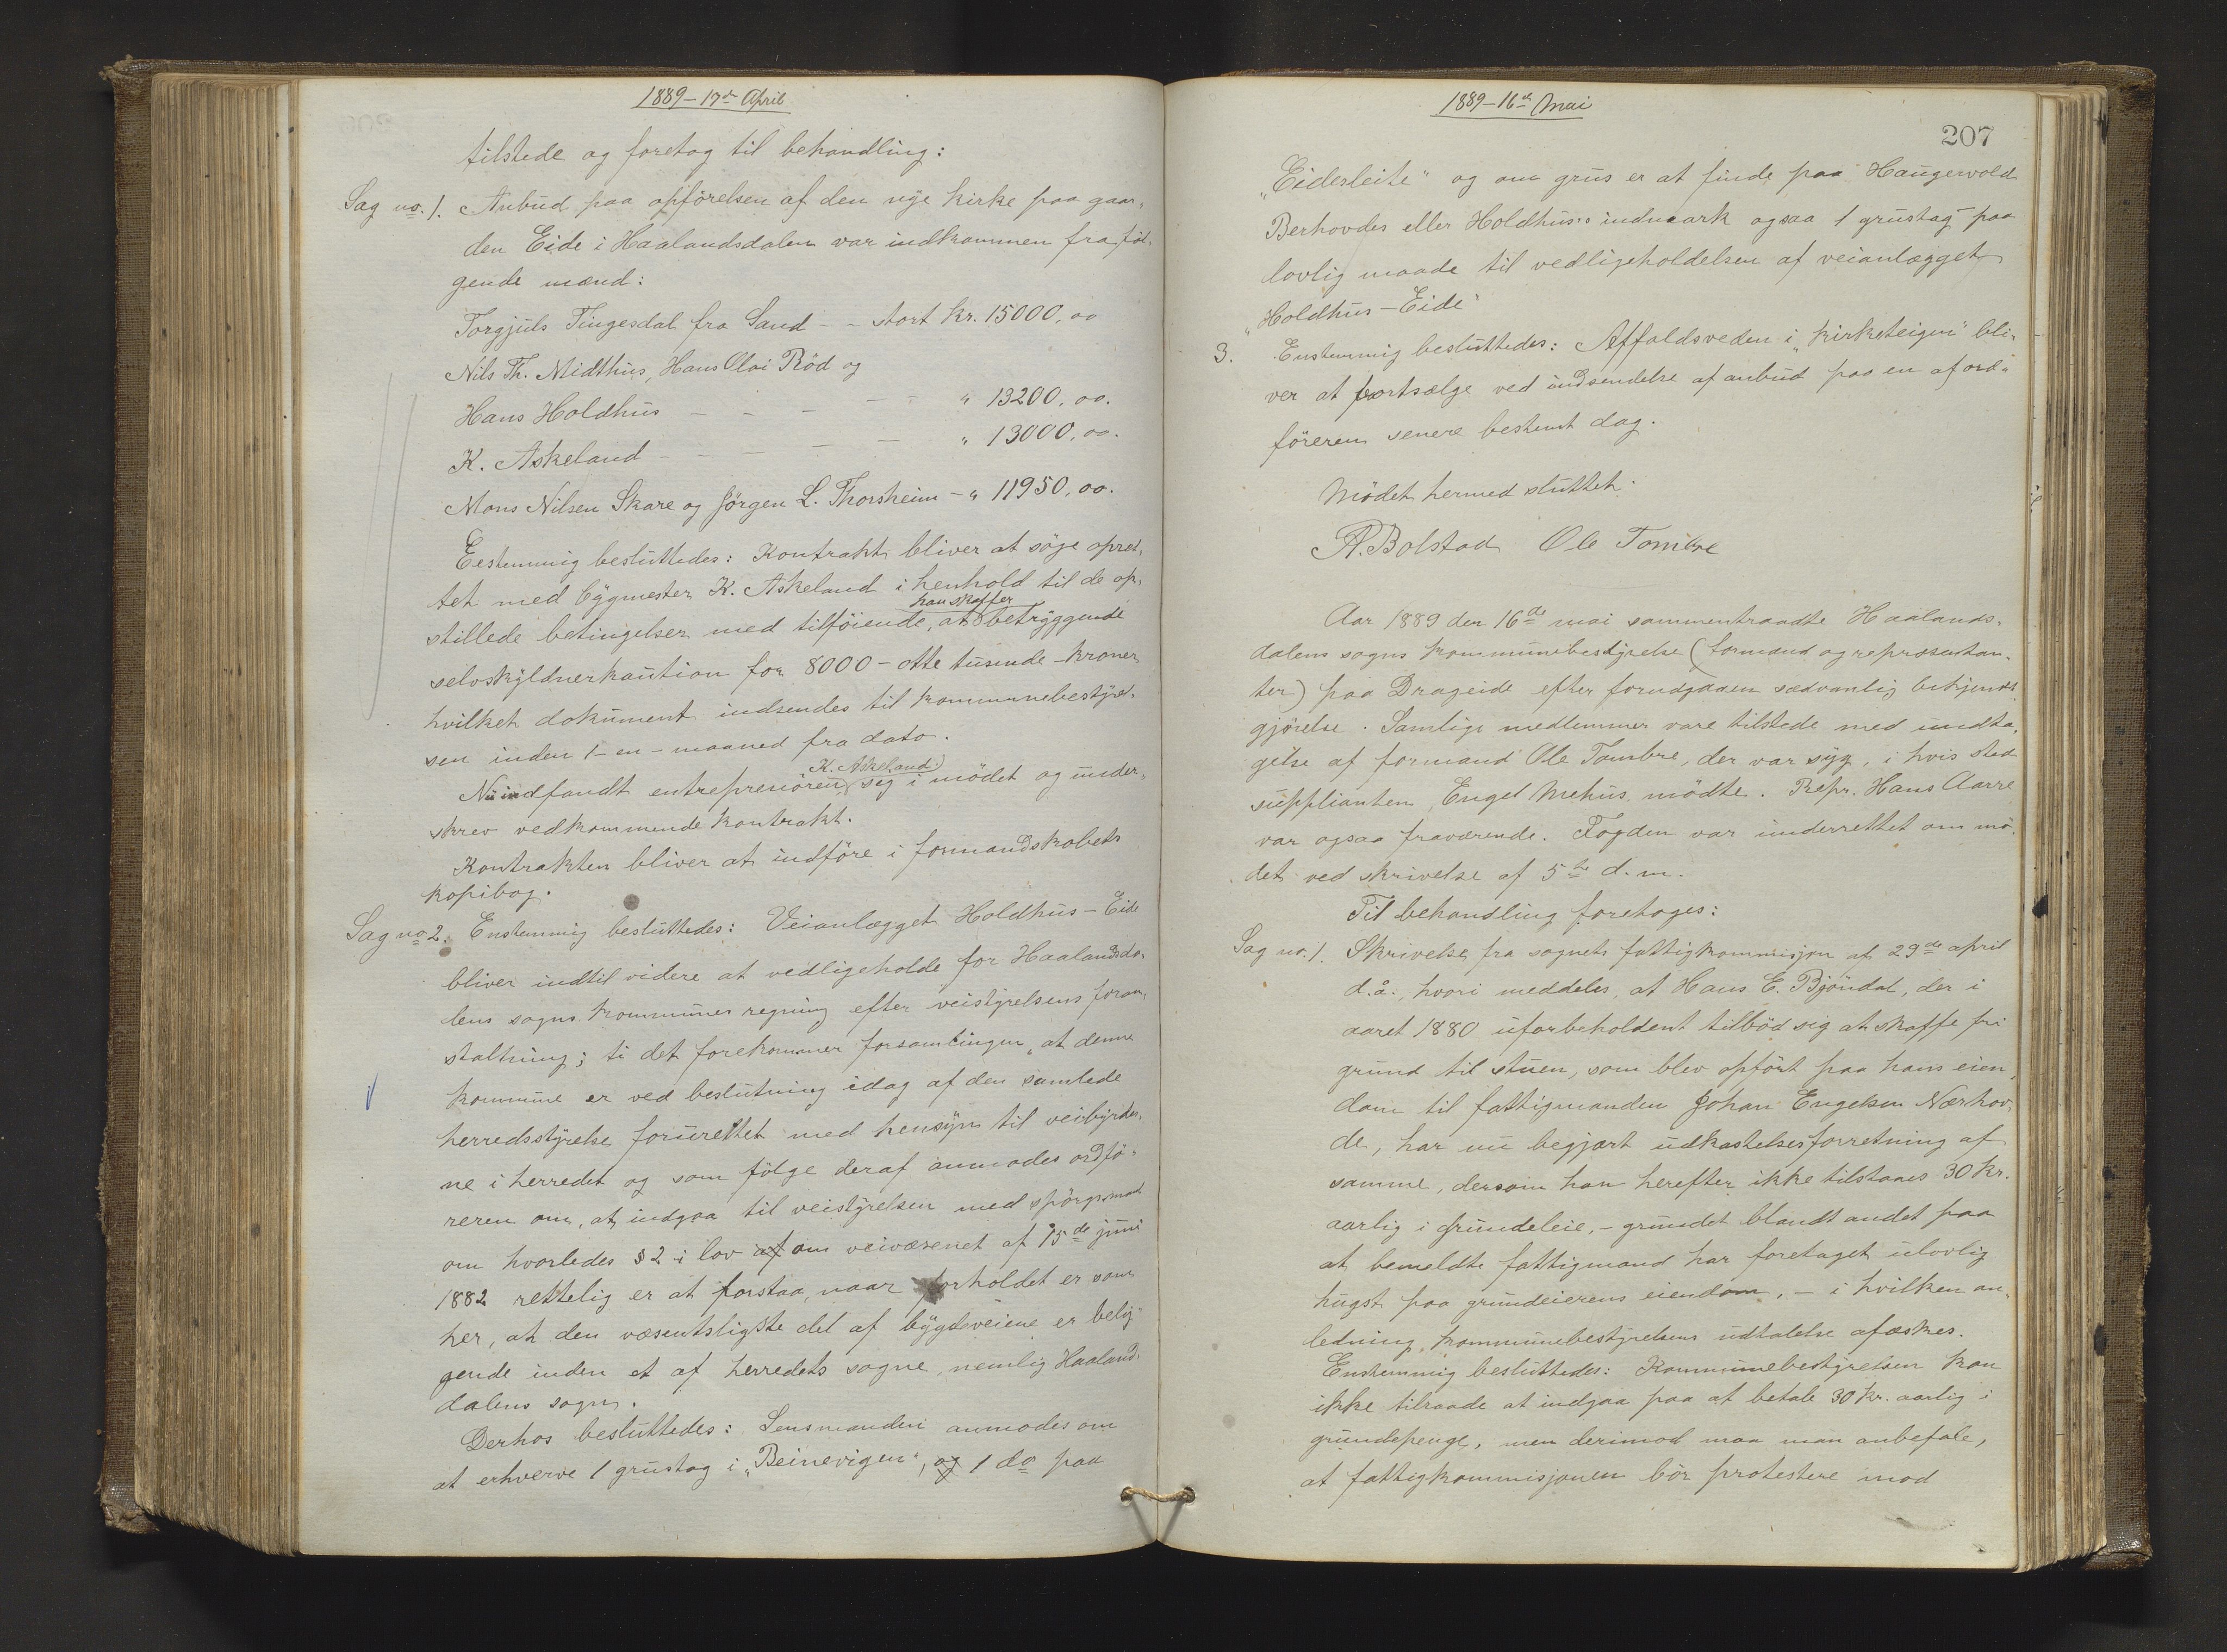 1889 - 17de April
tilstede og foretog til behandling:
Sag no. 1. Anbud paa opförelsen af den nye kirke paa gaar-
den Eide i Haalandsdalen var indkommen fra föl-
gende mænd:
Torgjuls Tingesdal fra Sand - - stort kr. 15000,00
Nils Th. Midthus, Hans Olai Röd og
Hans Holdhus - - - - - " 13200,00.
K. Askeland - - - - - " 13000,00.
Mons Nilsen Skare og Jörgen L. Thorsheim - " 11950,00.
Eestemmig besluttedes: Kontrakt bliver at söge opret-
tet med bygmester K. Askeland i henhold til de op-
stillede betingelser med tilföiende, at han skaffer betryggende
selvskyldnerkaution for 8000 - otte tusinde - kroner
hvilket dokument indsendes til kommunebestyrel-
sen inden 1 - en - maaned fra dato.
Nu indfandt entreprenören K. Askeland sig i mödet og under-
skrev vedkommende kontrakt.
Kontrakten bliver at indföre i formandskabets
kopibog.
Sag no 2. Enstemmig besluttedes: Veianlægget Holdhus - Eide
bliver indtil videre at vedligeholde for Haalandsda-
lens sogns kommunes regning efter veistyrelsens foran-
staltning; ti det forekommer forsamlingen, at denne
kommune er ved beslutning idag af den samlede
herredsstyrelse forurettet med hensyn til veibyrder-
ne i herredet og som fölge deraf anmodes ordfö-
reren om, at indgaa til veistyrelsen med spörgsmaal
om hvorledes § 2 i lov af om veivæsenet af 15de juni
1882 rettelig er at forstaa, naar forholdet er som
her, at den væsentsligste del af bygdeveiene er belig-
gende inden et af herredets sogne, nemlig Haaland-
dalens sogn.
Derhos besluttedes: Lensmanden anmodes om
at erhverve 1 grustag i "Beinevigen", og 1 do paa
1889 - 16de Mai
207
"Eidesleite" og om grus er at finde paa Haugervold
Berhovdes eller Holdhus's indmark ogsaa 1 grustag paa
lovlig maade til vedligeholdelsen af veianlægget
"Holdhus - Eide"
3. Enstemmig besluttedes: Affaldsveden i "kirketeigen" bli-
ver at bortsælge ved indsendelse af anbud paa en af ord-
föreren senere bestemt dag.
Mödet hermed sluttet.
A. Bolstad Ole Tombre
Aar 1889 den 16de mai sammentraadte Haalands-
dalens sogns kommunebestyrelse (formænd og repræsentan-
ter) paa Drageide efter forudgaaen sædvanlig bekjendt-
gjörelse. Samtlige medlemmer vare tilstede med undta-
gelse af formand Ole Tombre, der var syg, i hvis sted
supplianten Engel Mehus mödte. Repr. Hans Aarre
var ogsaa fraværende. Fogden var underrettet om mö-
det ved skrivelse af 5te d. m.
Til behandling foretoges:
Sag no. 1. Skrivelse fra sognets fattigkommisjon af 29de april
d.å., hvori meddeles, at Hans E. Björndal, der i
aaret 1880 uforbeholdent tilböd sig at skaffe fri
grund til stuen, som blev opfört paa hans eien-
dom til fattigmanden Johan Engelsen Nærhov-
de, har nu begjært udkastelsesforretning af
samme, dersom han herefter ikke tilstaaes 30 kr.
aarlig i grundeleie, - grundet blandt andet paa
at bemeldte fattigmand har foretaget ulovlig
hugst paa grundeierens eiendom, - i hvilken an-
ledning kommunebestyrelsens udtalelse afæskes.
Enstemmig besluttedes: Kommunebestyrelsen kan
ikke tilraade at indgaa paa at betale 30 kr. aarlig i
grundepenge, men derimod maa man anbefale,
at fattigkommisjonen bör protestere mod